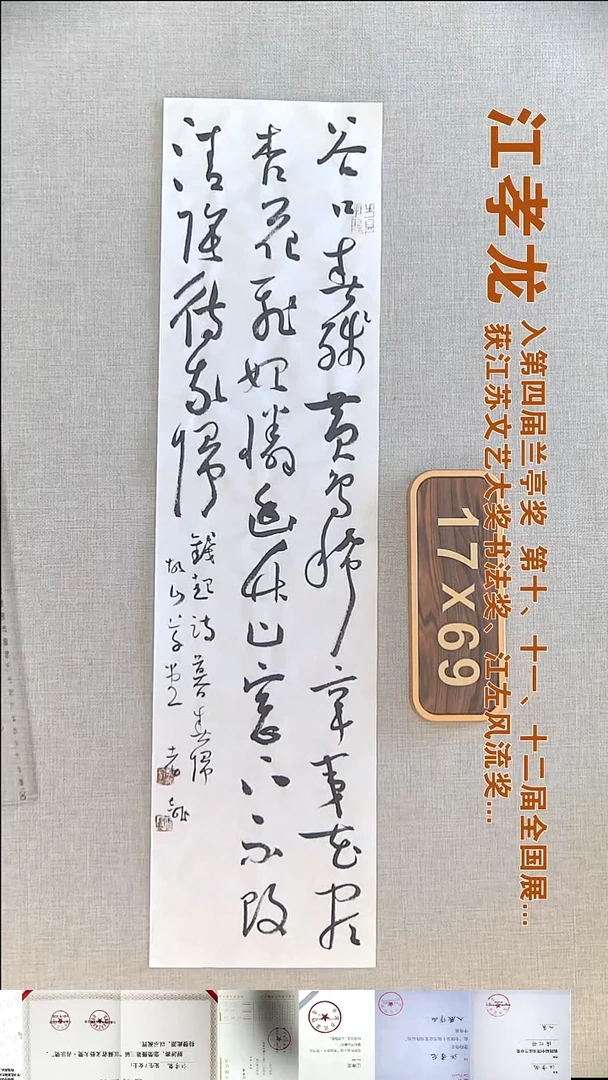 江孝龙
入第四届兰亭奖 第十、十一、十二届全国展...
获江苏文艺大奖书法奖、江左风流奖...
17X69
谷口春殘黃鳥稀辛夷花尽
杏花飛始憐幽竹山窗下不改
清陰待我歸
錢起詩暮春歸
故山草堂 孝龍